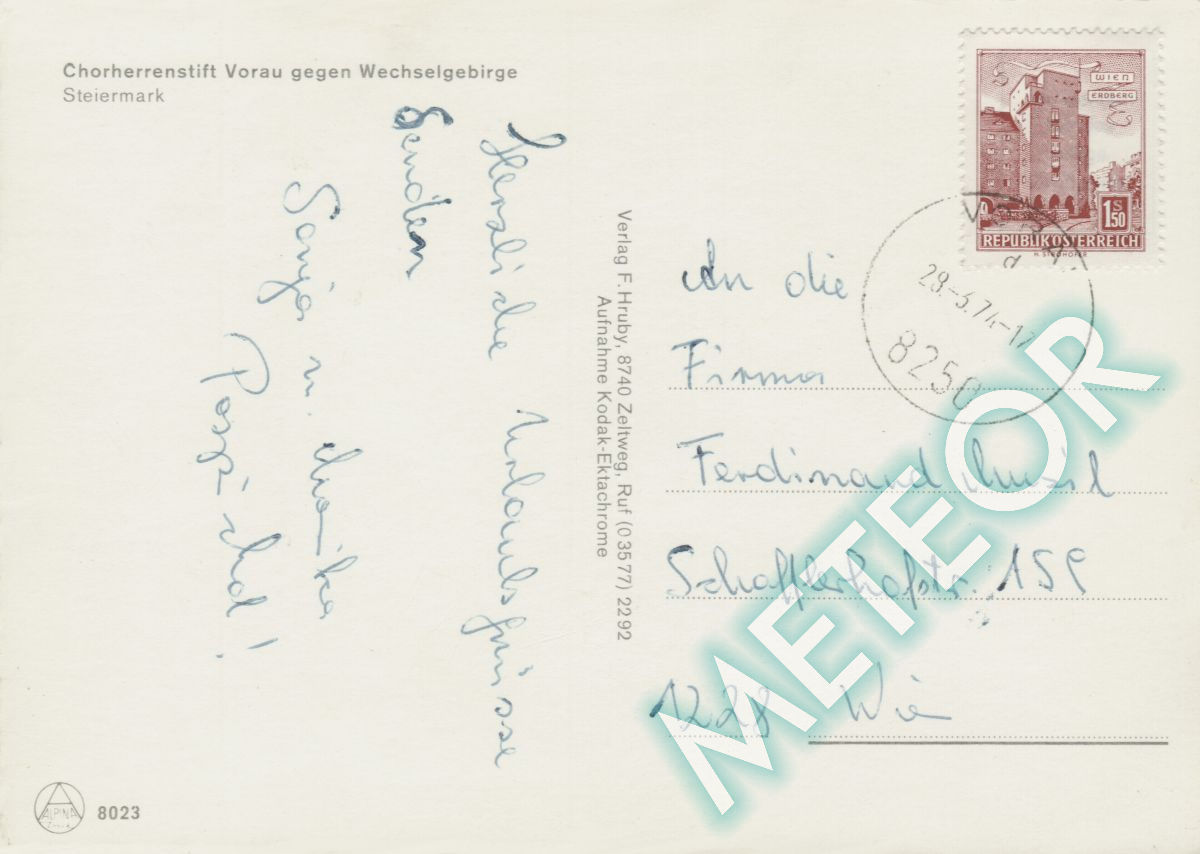 Chorherrenstift Vorau gegen Wechselgebirge
Steiermark
Herzliche Urlaubsgrüsse
senden
Sonja u.
WIEN
ERDBERG
1 S 50
REPUBLIK ÖSTERREICH
28.-6.74-17
8250
Verlag F. Hruby, 8740 Zeltweg, Ruf (03577) 2292
Aufnahme Kodak-Ektachrome
An die
Firma
Ferdinand
Schafflerhofstr. 159
1228 Wien
METEOR
ALPINA
8023